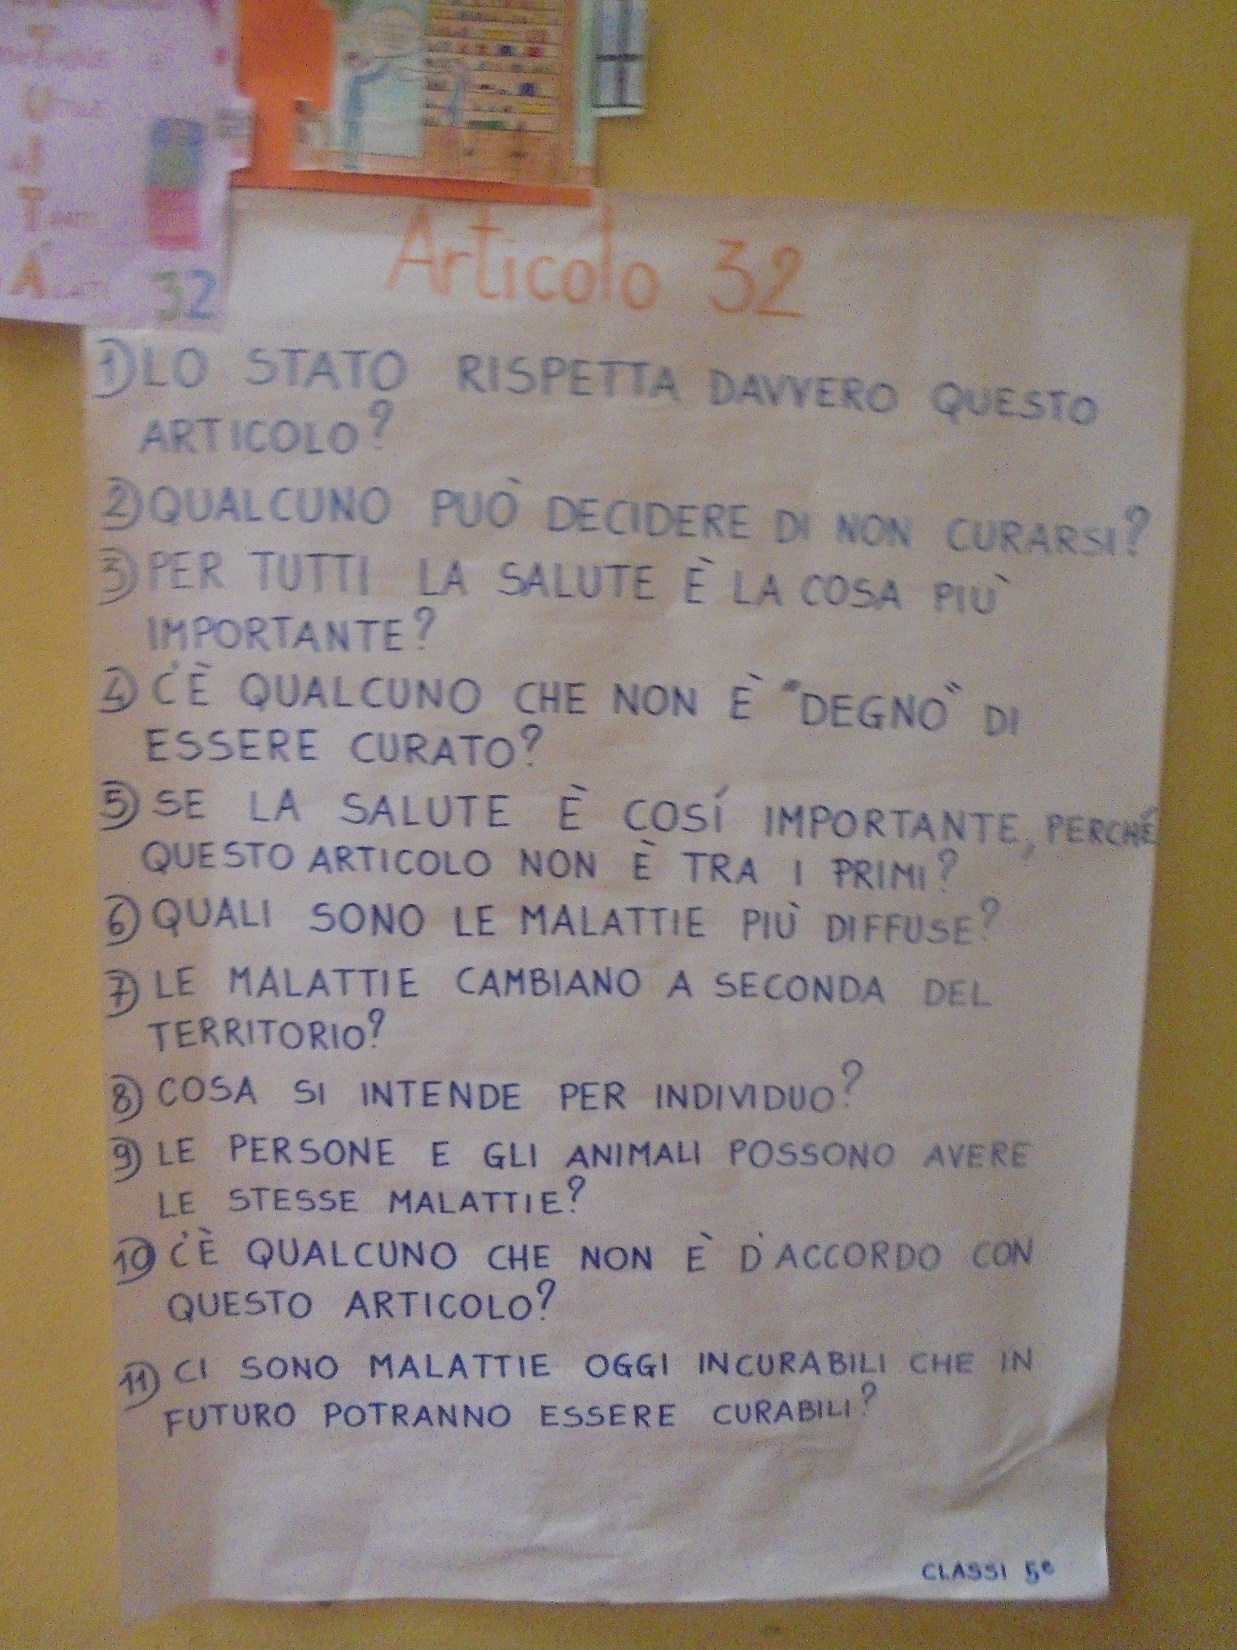 U
T
A
32
Articolo 32
1) LO STATO RISPETTA DAVVERO QUESTO
ARTICOLO?
2) QUALCUNO PUÒ DECIDERE DI NON CURARSI?
3) PER TUTTI LA SALUTE È LA COSA PIÙ
IMPORTANTE?
4) C'È QUALCUNO CHE NON È "DEGNO" DI
ESSERE CURATO?
5) SE LA SALUTE È COSÍ IMPORTANTE, PERCHÉ
QUESTO ARTICOLO NON È TRA I PRIMI?
6) QUALI SONO LE MALATTIE PIÙ DIFFUSE?
7) LE MALATTIE CAMBIANO A SECONDA DEL
TERRITORIO?
8) COSA SI INTENDE PER INDIVIDUO?
9) LE PERSONE E GLI ANIMALI POSSONO AVERE
LE STESSE MALATTIE?
10) C'È QUALCUNO CHE NON È D'ACCORDO CON
QUESTO ARTICOLO?
11) CI SONO MALATTIE OGGI INCURABILI CHE IN
FUTURO POTRANNO ESSERE CURABILI?
CLASSI 5e